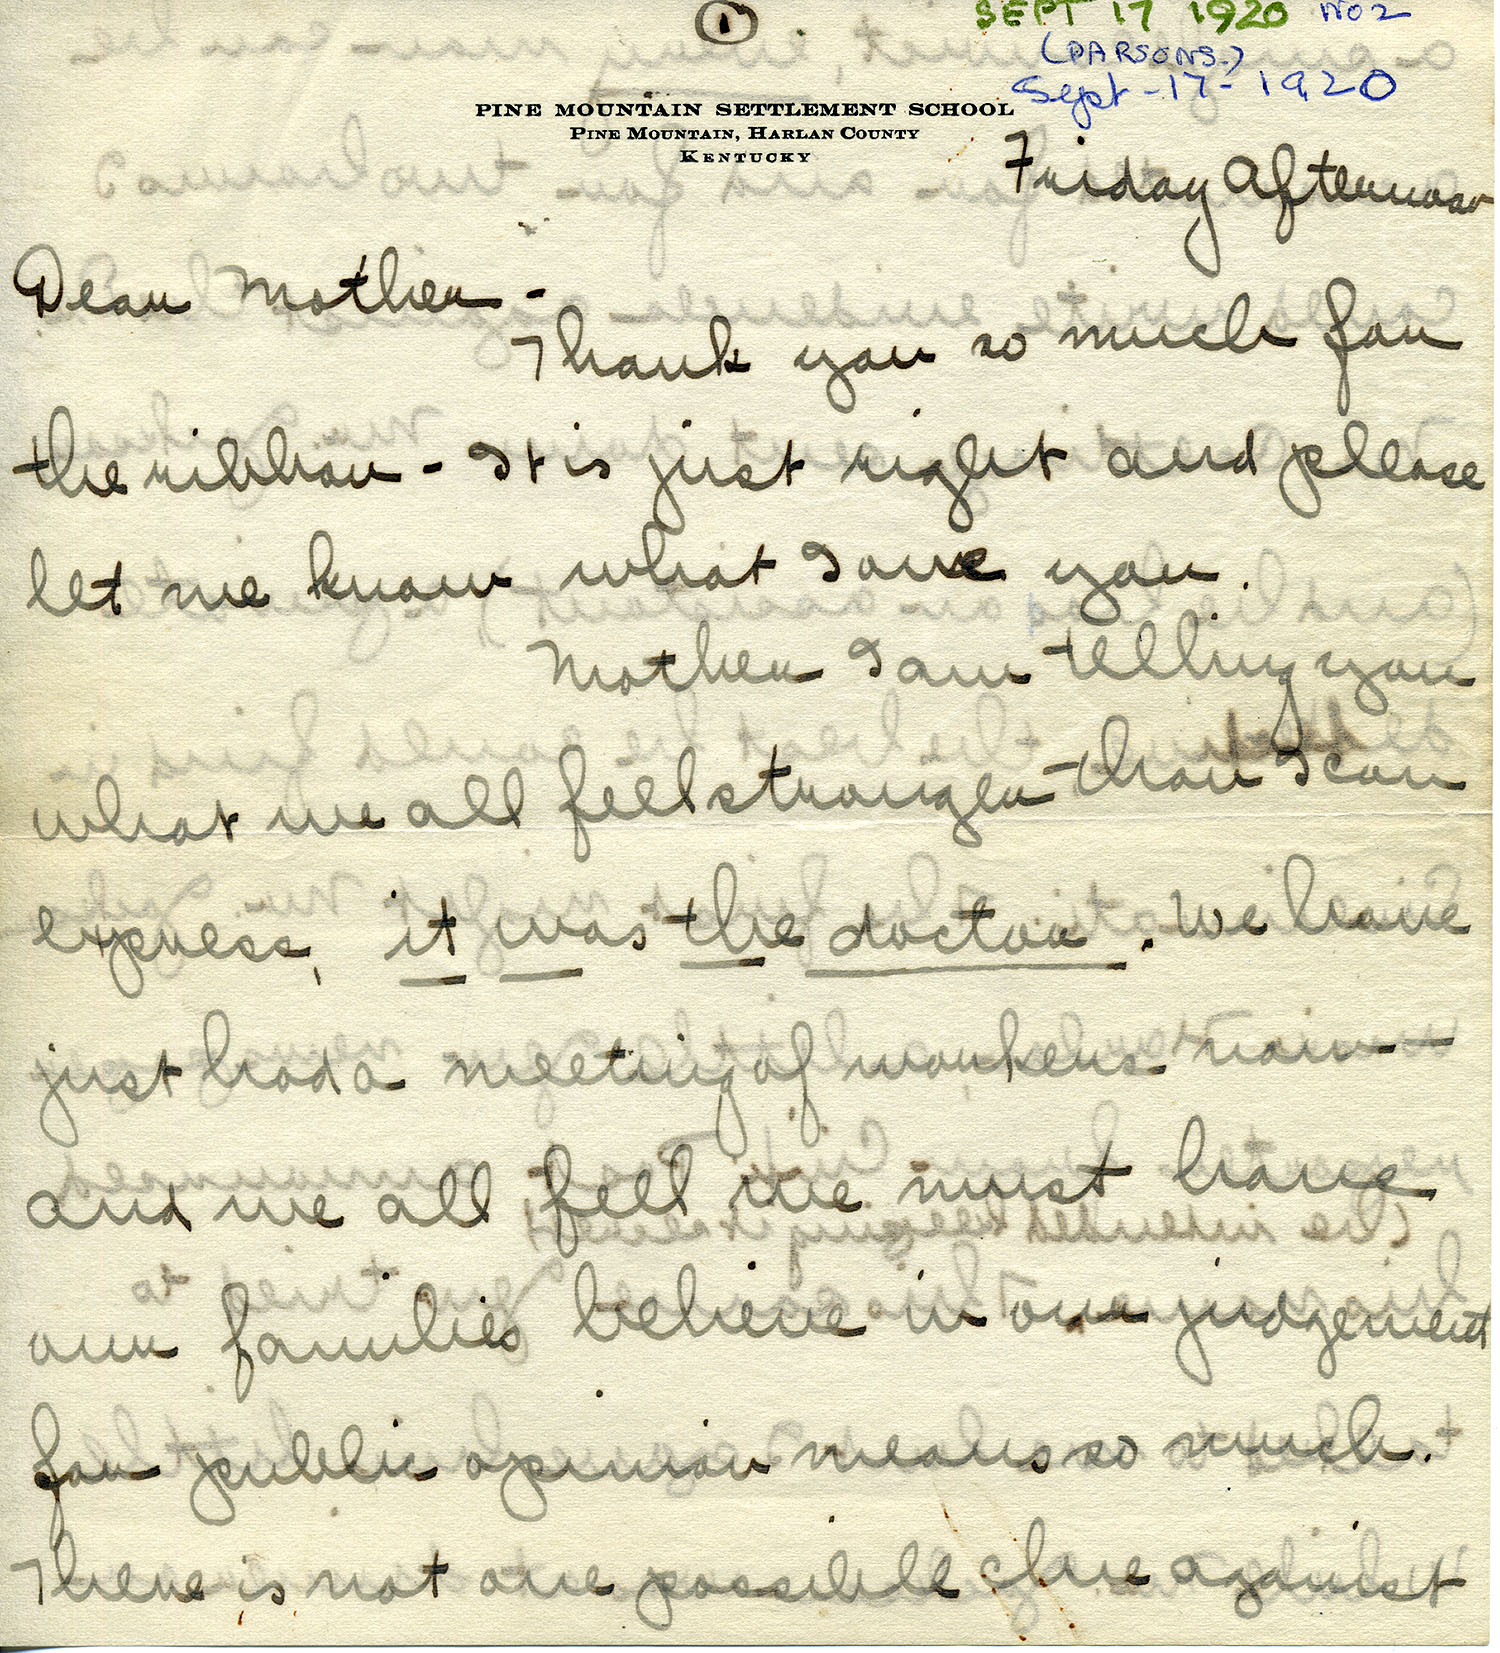 1
SEPT 17 1920 No 2
(PARSONS.)
Sept-17-1920
PINE MOUNTAIN SETTLEMENT SCHOOL
PINE MOUNTAIN, HARLAN COUNTY
KENTUCKY
Friday Afternoon
Dear Mother -
Thank you so much for
the ribbon - It is just right and please
let me know what I owe you.
Mother I am telling you
what we all feel stronger than I can
express, it was the doctor. We have
just had a meeting of workers now -
and we all feel we must have
our families believe in our judgement
for public opinion means so much.
There is not one possible clue against